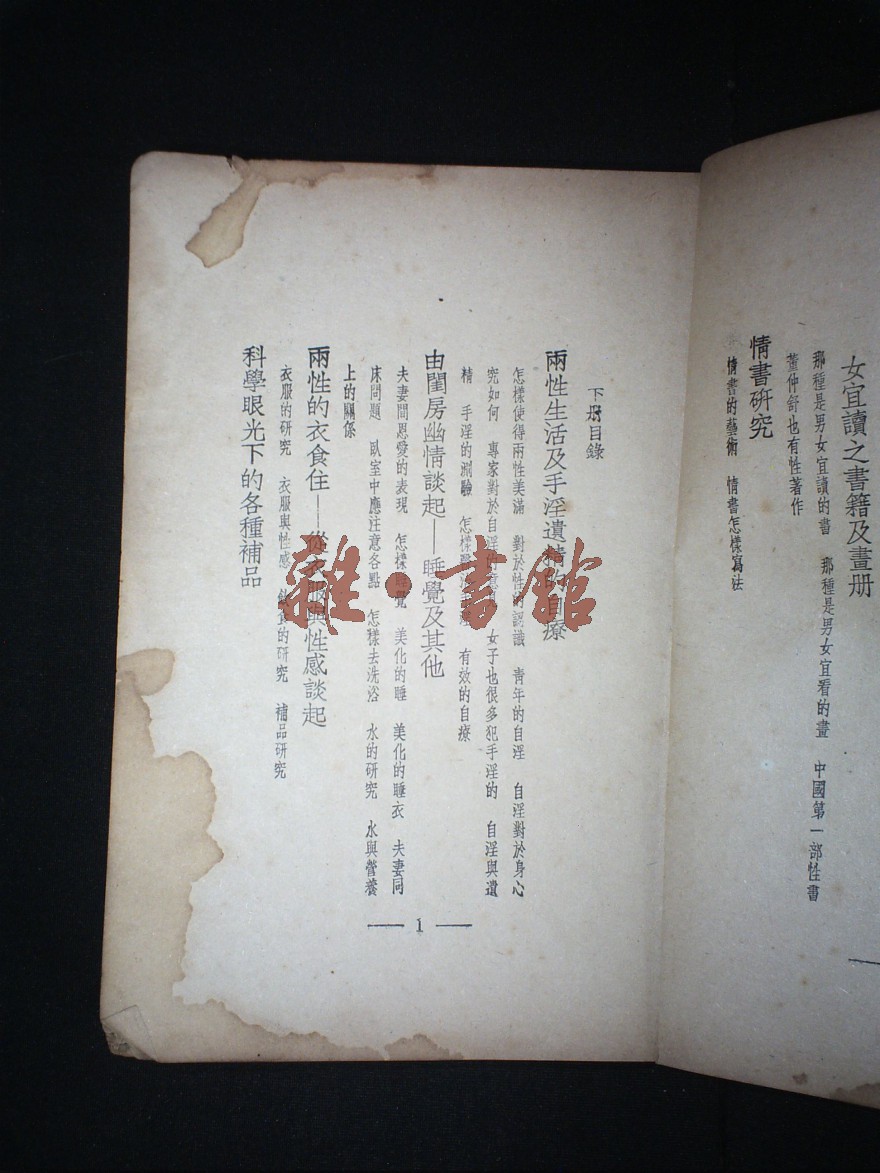 女宜讀之書籍及畫册
那種是男女宜讀的書 那種是男女宜看的畫 中國第一部性書
董仲舒也有性著作
情書研究
情書的藝術 情書怎樣寫法
下册目錄
兩性生活及手淫遺精的自療
怎樣使得兩性美滿 對於性的認識 青年的自淫 自淫對於身心
究如何 專家對於自淫的意見 女子也很多犯手淫的 自淫與遺
精 手淫的測驗 怎樣 有效的自療
由閨房幽情談起—睡覺及其他
夫妻間恩愛的表現 怎樣睡覺 美化的睡 美化的睡衣 夫妻同
床問題 臥室中應注意各點 怎樣去洗浴 水的研究 水與營養
上的關係
兩性的衣食住—從衣服與性感談起
衣服的研究 衣服與性感 飲食的研究 補品研究
科學眼光下的各種補品
— 1 —
雜·書館